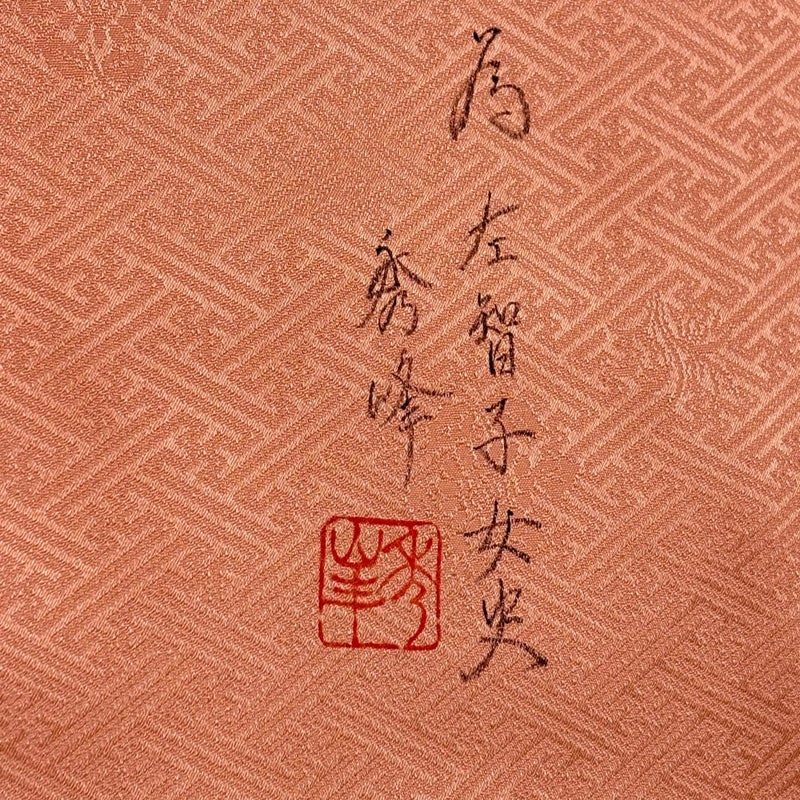 為 左智子女史
秀峰
秀峰